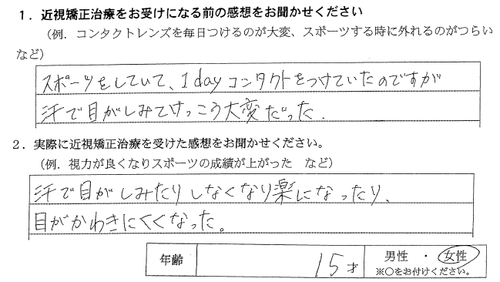 1．近視矯正治療をお受けになる前の感想をお聞かせください
（例．コンタクトレンズを毎日つけるのが大変、スポーツする時に外れるのがつらい
など）
スポーツをしていて、1dayコンタクトをつけていたのですが
汗で目がしみてけっこう大変だった.
2．実際に近視矯正治療を受けた感想をお聞かせください。
（例．視力が良くなりスポーツの成績が上がった　など）
汗で目がしみたりしなくなり楽になったり、
目がかわきにくくなった。
年齢 15才 男性 ・ 女性
※〇をお付けください。